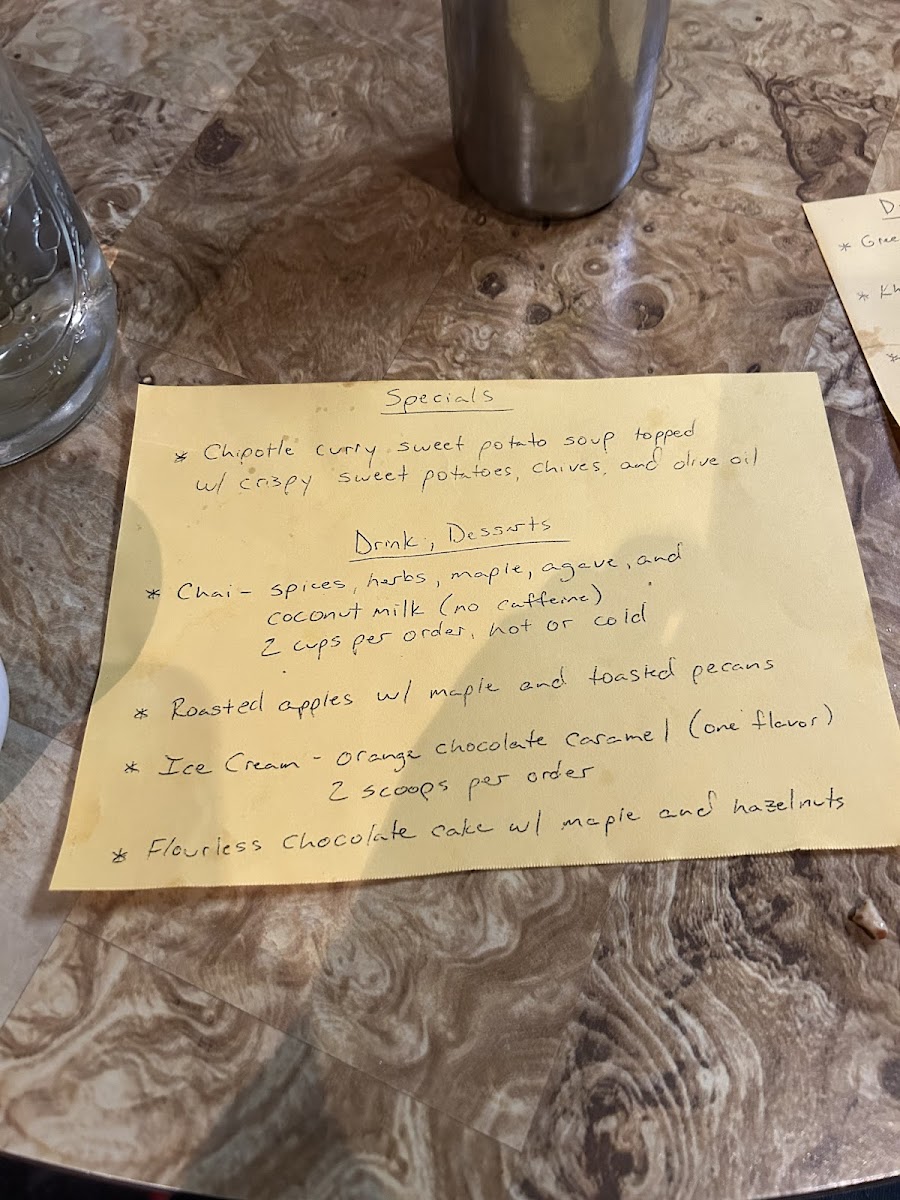 Specials
* Chipotle curry sweet potato soup topped
w/ crispy sweet potatoes, chives, and olive oil
Drink, Desserts
* Chai - spices, herbs, maple, agave, and
coconut milk (no caffeine)
2 cups per order, hot or cold
* Roasted apples w/ maple and toasted pecans
* Ice Cream - orange chocolate caramel (one flavor)
2 scoops per order
* Flourless chocolate cake w/ maple and hazelnuts
*
*
*